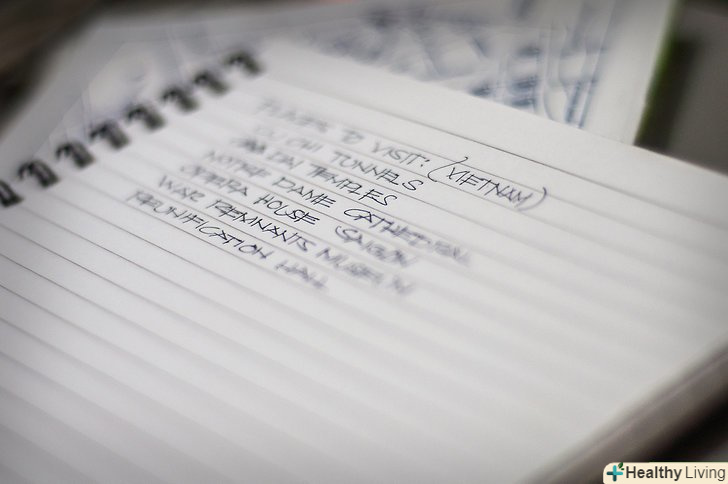 PLACES TO VISIT: (VIETNAM)
CU CHI TUNNELS
CAO DAI TEMPLES
NOTRE DAME CATHEDRAL
OPERA HOUSE SAIGON
WAR REMNANTS MUSEUM
REUNIFICATION HALL
Healthy Living